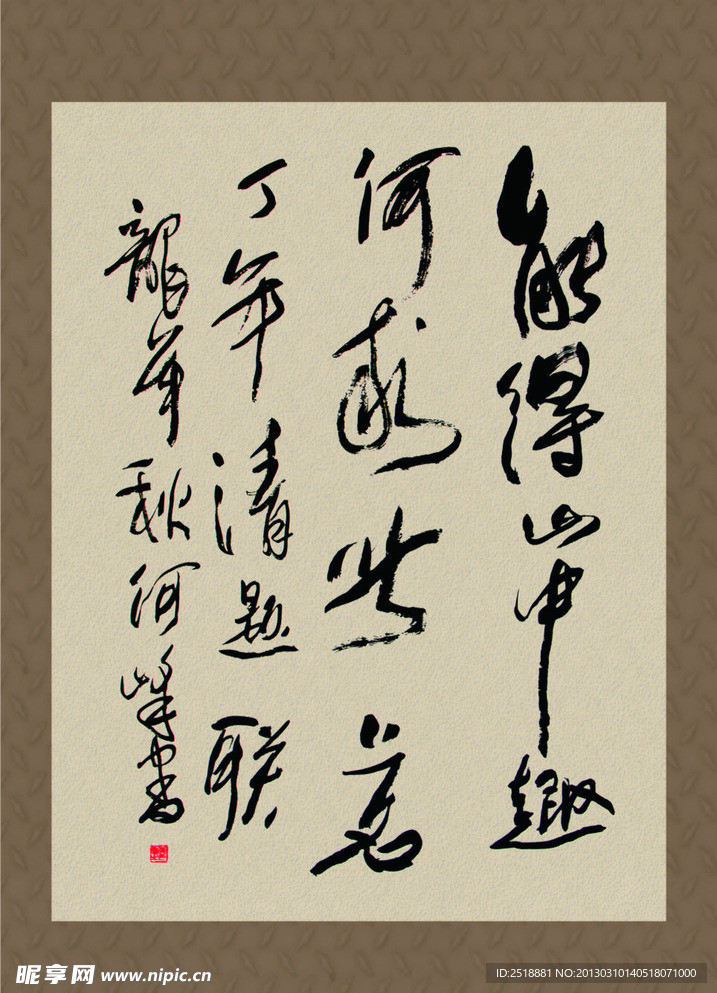 能得山中趣
何此
丁年清题联
龍年秋何峰書
昵享网 www.nipic.cn
ID:2518881 NO:20130310140518071000